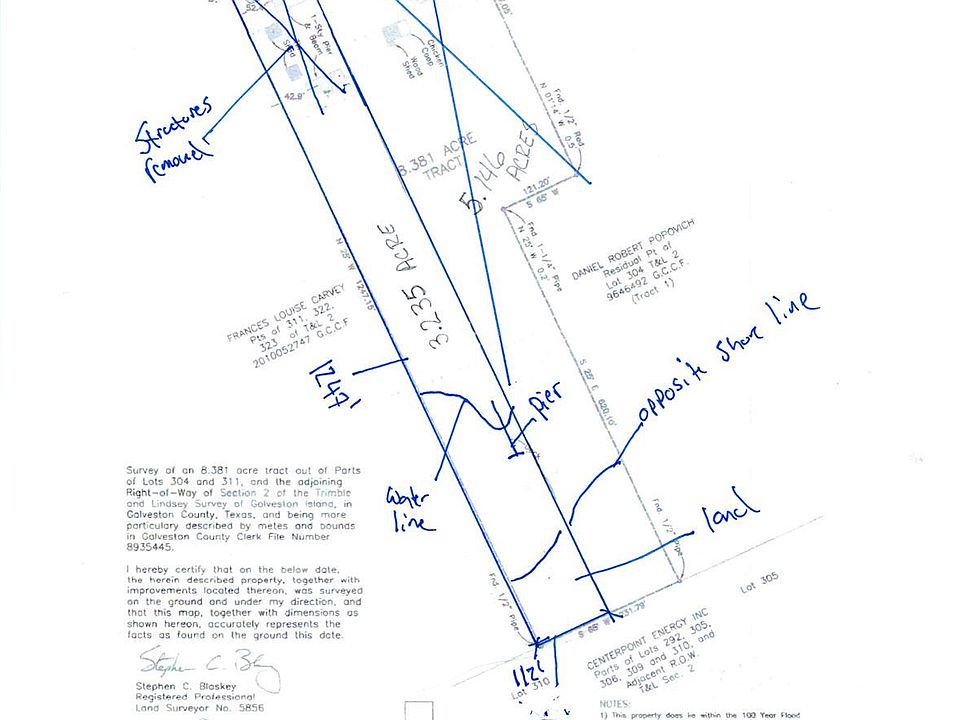 52.
1-Sty Pier
& Beam
Shed
42.9'
Chicken
Coop
Wood
Shed
Structures
removed
Fnd. 1/2" Rod
N 01°14' W 0.5'
8.381 ACRE
TRACT
5.146
ACRES
121.20'
S 65° W
Fnd. 1-1/4" Pipe
N 25° W 0.2'
DANIEL ROBERT POPOVICH
Residual Pt of
Lot 304 T&L 2
9646492 G.C.C.F.
(Tract 1)
N 25° W 1247.16'
3.235 ACRE
FRANCES LOUISE CARVEY
Pts of 311, 322,
323 of T&L 2
2010052747 G.C.C.F
1247'
opposite shore line
S 25° E 620.10'
pier
water
line
land
Survey of an 8.381 acre tract out of Parts
of Lots 304 and 311, and the adjoining
Right-of-Way of Section 2 of the Trimble
and Lindsey Survey of Galveston Island, in
Galveston County, Texas, and being more
particularly described by metes and bounds
in Galveston County Clerk File Number
8935445.
I hereby certify that on the below date,
the herein described property, together with
improvements located thereon, was surveyed
on the ground and under my direction, and
that this map, together with dimensions as
shown hereon, accurately represents the
facts as found on the ground this date.
Stephen C. Blaskey
Registered Professional
Land Surveyor No. 5856
Fnd. 1/2" Pipe
Fnd. 1/2" Pipe
Lot 305
S 65° W 231.79'
112'
Lot 310
CENTERPOINT ENERGY INC
Parts of Lots 292, 305,
306, 309 and 310, and
Adjacent R.O.W.
T&L Sec. 2
NOTES:
1) This property does lie within the 100 Year Flood